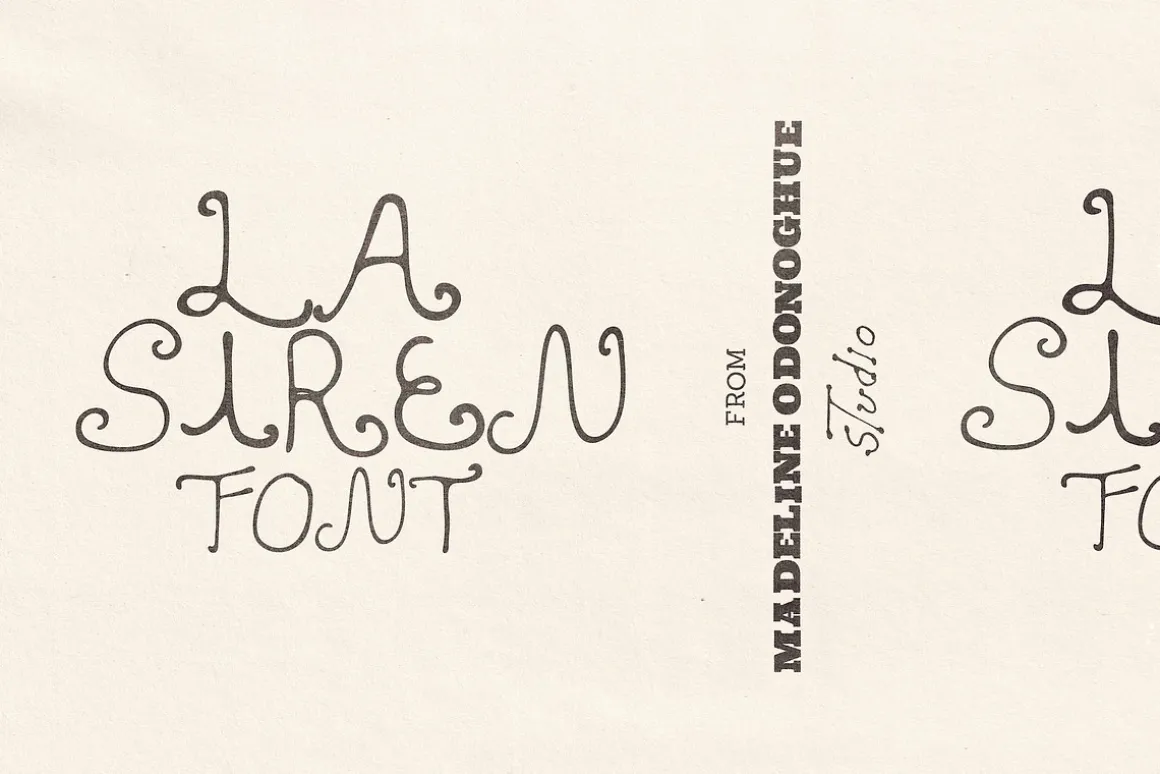 LA
SIREN
FONT
FROM
MADELINE ODONOGHUE
STudio
L
SI
FO